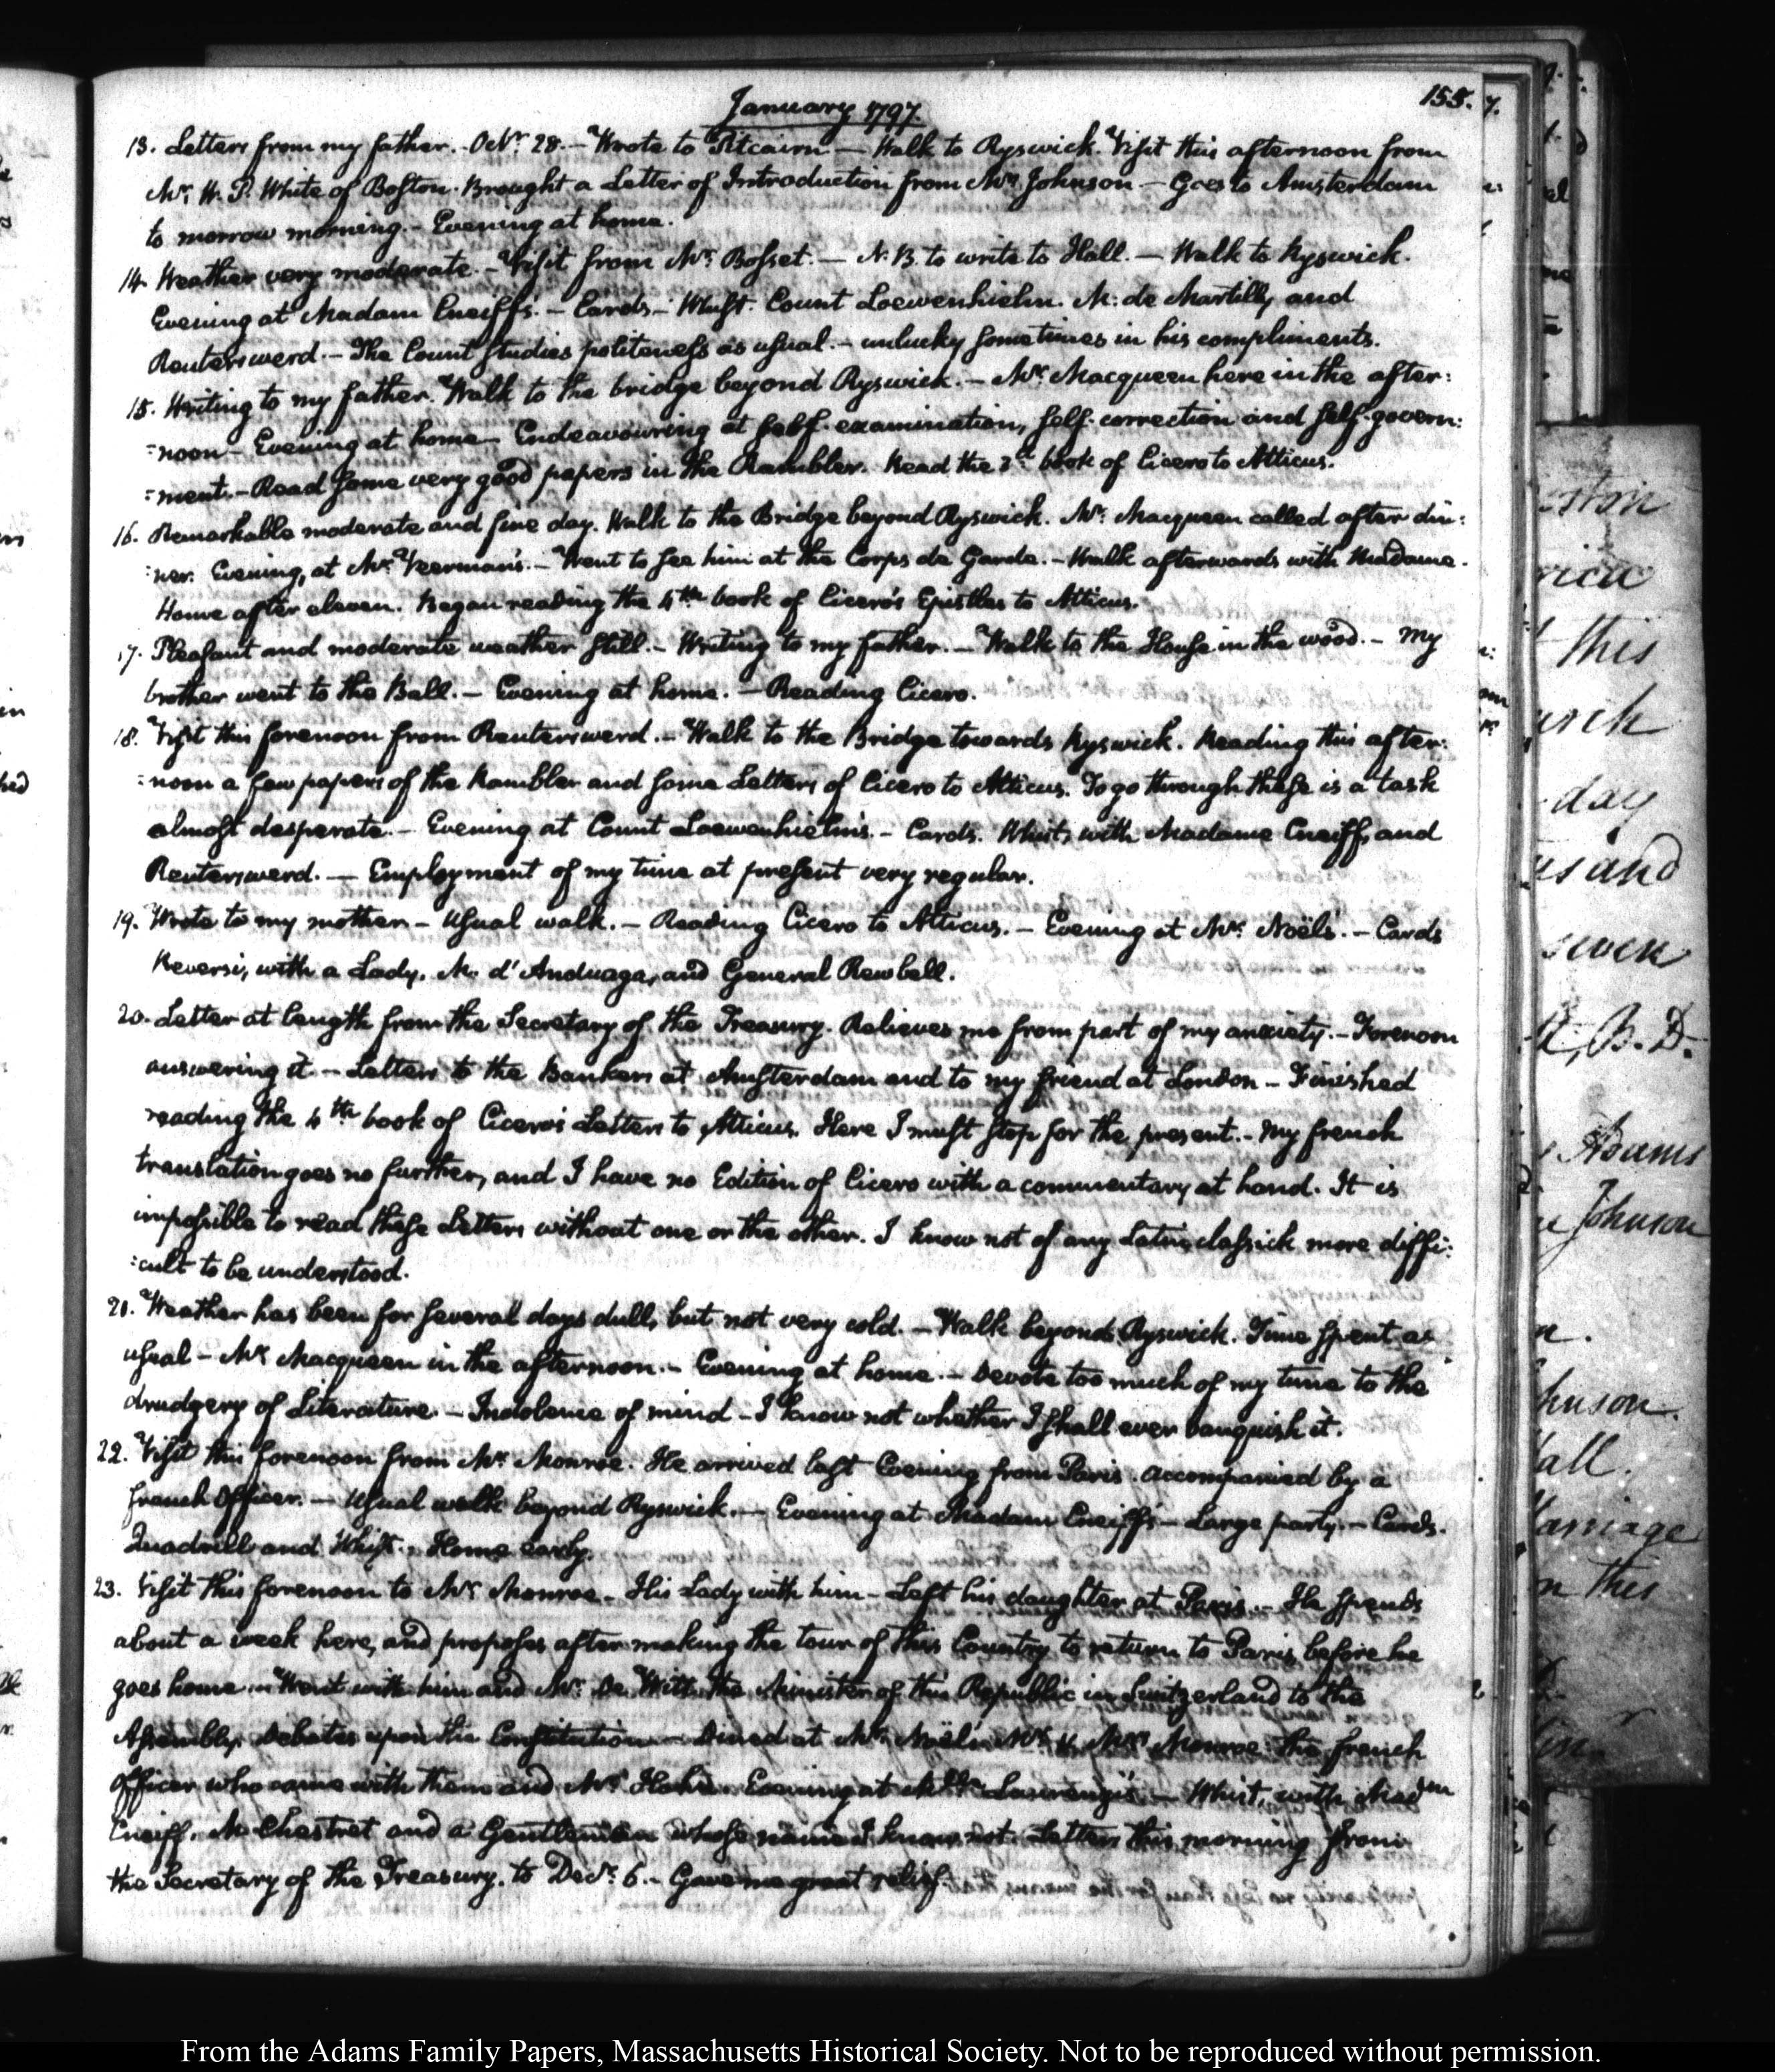 January 1797.
155.
13. Letters from my father. Octr. 28. — Wrote to Pitcairn — Walk to Ryswick. Visit this afternoon from
Mr. W. P. White of Boston. Brought a Letter of Introduction from Mrs. Johnson — Goes to Amsterdam
to morrow morning. — Evening at home.
14. Weather very moderate. — Visit from Mr. Bosset. — N.B. to write to Hall. — Walk to Ryswick.
Evening at Madam Cneiff's. — Cards. — Whist. Count Loewenhielm. M: de Martilly, and
Reuterswerd. — The Count studies politeness as usual. — unlucky sometimes in his compliments.
15. Writing to my father. Walk to the bridge beyond Ryswick. — Mr. Macqueen here in the after:
:noon — Evening at home — Endeavouring at self-examination, self-correction and self-govern:
:ment. — Read some very good papers in the Rambler. Read the 3d. book of Cicero to Atticus.
16. Remarkable moderate and fine day. Walk to the Bridge beyond Ryswick. Mr. Macqueen called after din:
:ner. Evening, at Mr. Veerman's. — Went to see him at the Corps de Garde. — Walk afterwards with Madame.
Home after eleven. Began reading the 4th book of Cicero's Epistles to Atticus.
17. Pleasant and moderate weather still. — Writing to my father. — Walk to the House in the wood. — My
brother went to the Ball. — Evening at home. — Reading Cicero.
18. Visit this forenoon from Reuterswerd. — Walk to the Bridge towards Ryswick. Reading this after:
:noon a few papers of the Rambler and some Letters of Cicero to Atticus. To go through these is a task
almost desperate. — Evening at Count Loewenhielm's. — Cards. Whist, with Madame Cneiff, and
Reuterswerd. — Employment of my time at present very regular.
19. Wrote to my mother — Usual walk. — Reading Cicero to Atticus. — Evening at Mr. Noël's. — Cards
Reversi, with a Lady, M. d'Anduaga, and General Rewbell.
20. Letter at length from the Secretary of the Treasury. Relieves me from part of my anxiety. — Forenoon
answering it. — Letters to the Bankers at Amsterdam and to my friend at London — Finished
reading the 4th book of Cicero's Letters to Atticus. Here I must stop for the present. — My french
translation goes no further, and I have no Edition of Cicero with a commentary at hand. It is
impossible to read these Letters without one or the other. I know not of any Latin classick more diffi:
:cult to be understood.
21. Weather has been for several days dull, but not very cold. — Walk beyond Ryswick. Time spent as
usual — Mr. Macqueen in the afternoon. — Evening at home. — Devote too much of my time to the
drudgery of Literature. — Indolence of mind — I know not whether I shall ever vanquish it.
22. Visit this forenoon from Mr. Monroe. He arrived last Evening from Paris. accompanied by a
french Officer. — Usual walk beyond Ryswick. — Evening at Madam Cneiff's — Large party. — Cards.
Quadrille and Whist. Home early.
23. Visit this forenoon to Mr. Monroe. His Lady with him — Left his daughter at Paris. — He spends
about a week here, and proposes after making the tour of this Country to return to Paris, before he
goes home. Went with him and Mr. De Witt, the Minister of this Republic in Switzerland to the
Assembly. Debates upon the Constitution — Dined at Mr. Noël's. Mr. & Mrs. Monroe, the french
Officer who came with them and Mr. Hahn. Evening at — Whist, with Madm.
Cneiff, M. Chastret and a Gentleman whose name I know not. Letters this morning from
the Secretary of the Treasury. to Decr. 6. — Gave me great relief.
this
day
and
seven
B. D.
Adams
Johnson
this
From the Adams Family Papers, Massachusetts Historical Society. Not to be reproduced without permission.